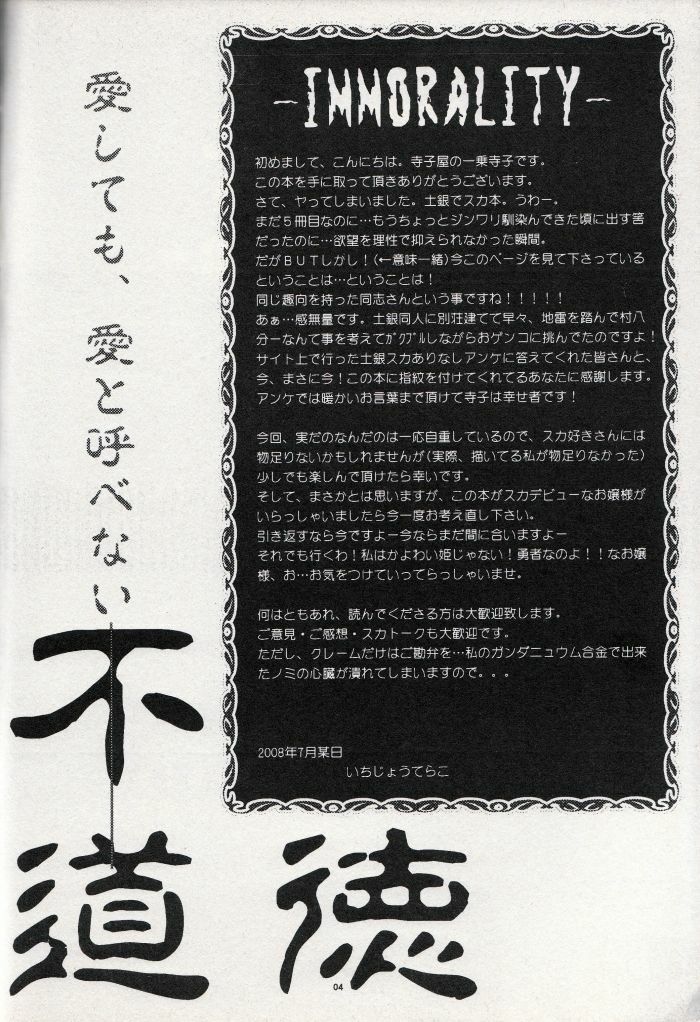 愛しても、愛と呼べない
不道徳
-IMMORALITY-
初めまして、こんにちは。寺子屋の一乗寺子です。
この本を手に取って頂きありがとうございます。
さて、ヤってしまいました。土銀でスカ本。うわー。
まだ5冊目なのに…もうちょっとジンワリ馴染んできた頃に出す筈
だったのに…欲望を理性で抑えられなかった瞬間。
だがBUTしかし!(←意味一緒)今このページを見て下さっている
ということは…ということは!
同じ趣向を持った同志さんという事ですね!!!!!
あぁ…感無量です。土銀同人に別荘建てて早々、地雷を踏んで村八
分ーなんて事を考えてガクブルしながらおゲンコに挑んでたのですよ!
サイト上で行った土銀スカありなしアンケに答えてくれた皆さんと、
今、まさに今!この本に指紋を付けてくれてるあなたに感謝します。
アンケでは暖かいお言葉まで頂けて寺子は幸せ者です!
今回、実だのなんだのは一応自重しているので、スカ好きさんには
物足りないかもしれませんが(実際、描いてる私が物足りなかった)
少しでも楽しんで頂けたら幸いです。
そして、まさかとは思いますが、この本がスカデビューなお嬢様が
いらっしゃいましたら今一度お考え直し下さい。
引き返すなら今ですよー今ならまだ間に合いますよー
それでも行くわ!私はかよわい姫じゃない!勇者なのよ!!なお嬢
様、お…お気をつけていってらっしゃいませ。
何はともあれ、読んでくださる方は大歓迎致します。
ご意見・ご感想・スカトークも大歓迎です。
ただし、クレームだけはご勘弁を…私のガンダニュウム合金で出来
たノミの心臓が潰れてしまいますので。。。
2008年7月某日
いちじょうてらこ
04